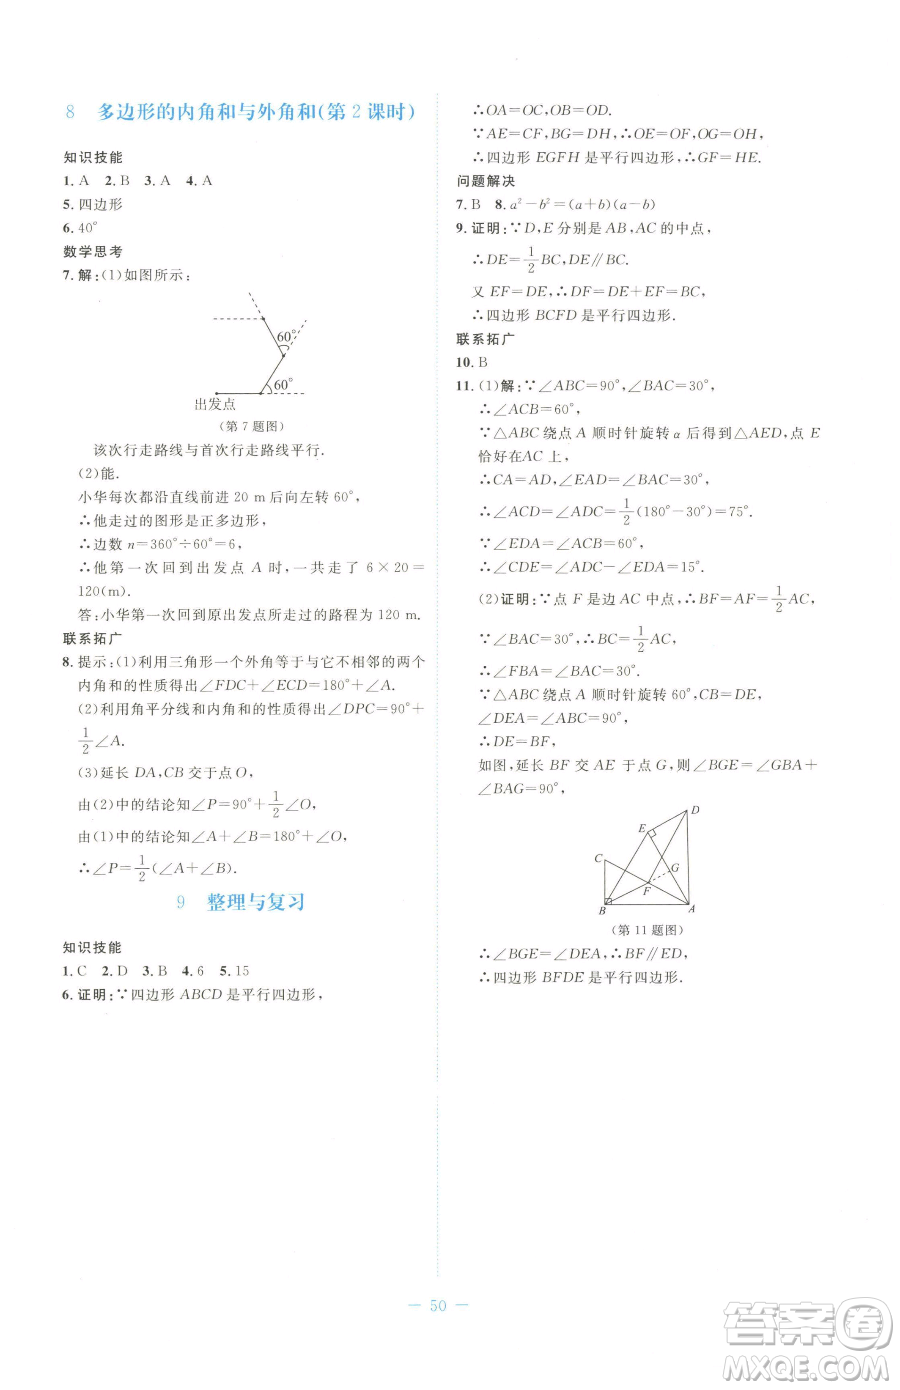 8 多边形的内角和与外角和(第2课时)
知识技能
1. A 2. B 3. A 4. A
5. 四边形
6. 40°
数学思考
7. 解:(1)如图所示:
60°
60°
出发点
(第7题图)
该次行走路线与首次行走路线平行.
(2)能.
小华每次都沿直线前进 20 m 后向左转 60°,
∴他走过的图形是正多边形,
∴边数 n=360°÷60°=6,
∴他第一次回到出发点 A 时,一共走了 6×20=
120(m).
答:小华第一次回到原出发点所走过的路程为 120 m.
联系拓广
8. 提示:(1)利用三角形一个外角等于与它不相邻的两个
内角和的性质得出∠FDC+∠ECD=180°+∠A.
(2)利用角平分线和内角和的性质得出∠DPC=90°+
1/2∠A.
(3)延长 DA,CB 交于点 O,
由(2)中的结论知∠P=90°+1/2∠O,
由(1)中的结论知∠A+∠B=180°+∠O,
∴∠P=1/2(∠A+∠B).
9 整理与复习
知识技能
1. C 2. D 3. B 4. 6 5. 15
6. 证明:∵四边形 ABCD 是平行四边形,
∴OA=OC,OB=OD.
∵AE=CF,BG=DH,∴OE=OF,OG=OH,
∴四边形 EGFH 是平行四边形,∴GF=HE.
问题解决
7. B 8. a²-b²=(a+b)(a-b)
9. 证明:∵D,E 分别是 AB,AC 的中点,
∴DE=1/2BC,DE∥BC.
又 EF=DE,∴DF=DE+EF=BC,
∴四边形 BCFD 是平行四边形.
联系拓广
10. B
11. (1)解:∵∠ABC=90°,∠BAC=30°,
∴∠ACB=60°,
∵△ABC 绕点 A 顺时针旋转 α 后得到△AED,点 E
恰好在AC 上,
∴CA=AD,∠EAD=∠BAC=30°,
∴∠ACD=∠ADC=1/2(180°-30°)=75°.
∵∠EDA=∠ACB=60°,
∴∠CDE=∠ADC-∠EDA=15°.
(2)证明:∵点 F 是边 AC 中点,∴BF=AF=1/2AC,
∵∠BAC=30°,∴BC=1/2AC,
∴∠FBA=∠BAC=30°.
∵△ABC 绕点A 顺时针旋转 60°,CB=DE,
∠DEA=∠ABC=90°,
∴DE=BF,
如图,延长 BF 交 AE 于点 G,则∠BGE=∠GBA+
∠BAG=90°,
D
E
C
G
F
B
A
(第11题图)
∴∠BGE=∠DEA,∴BF∥ED,
∴四边形 BFDE 是平行四边形.
— 50 —
答案圈
MXQE.COM